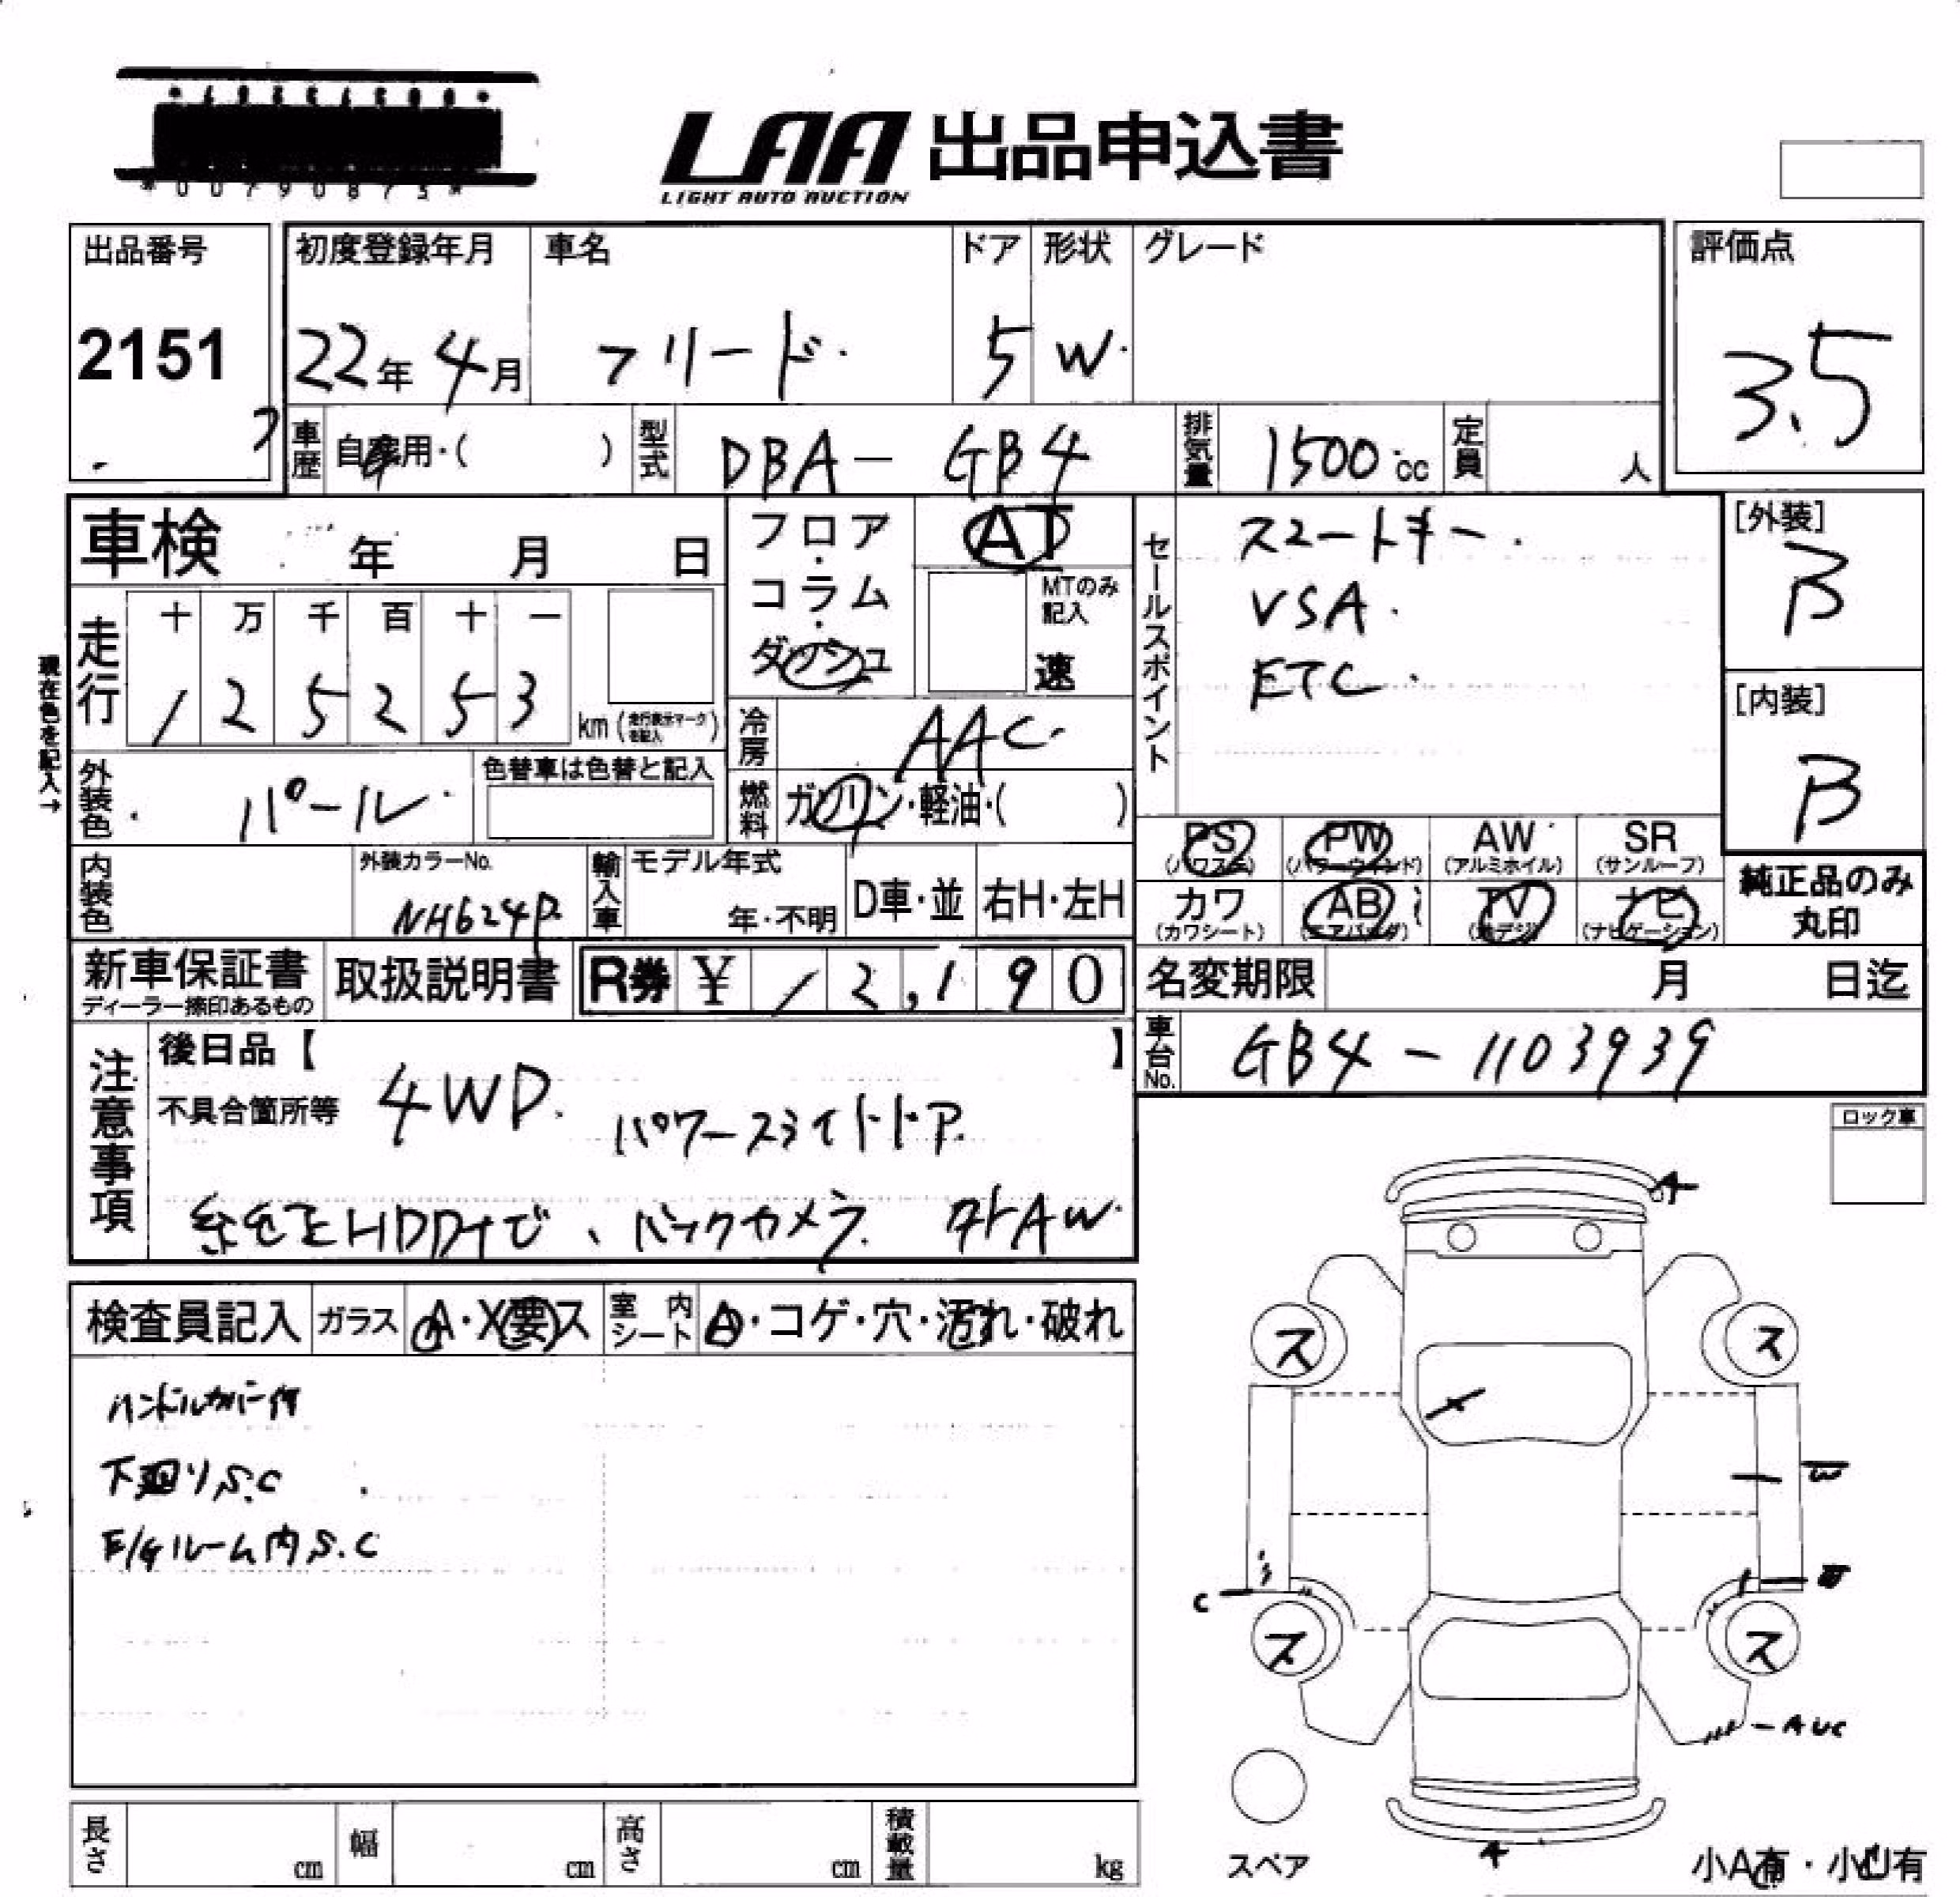 *00790873*
LAA 出品申込書
LIGHT AUTO AUCTION
出品番号 初度登録年月 車名 ドア 形状 グレード 評価点
2151 22年 4月 フリード 5 W 3.5
車歴 自家用・( ) 型式 DBA-GB4 排気量 1500cc 定員 人
車検 年 月 日 フロア・コラム・ダッシュ AT MTのみ記入 速
セールスポイント
スマートキー
VSA
ETC
[外装]
B
[内装]
B
現在色を記入→
走行 十 万 千 百 十 一
1 2 5 2 5 3 km (走行表示マークを記入)
冷房 AAC
外装色 パール 色替車は色替と記入
燃料 ガソリン・軽油・( )
PS (パワステ) PW (パワーウィンド) AW (アルミホイル) SR (サンルーフ)
カワ (カワシート) AB (エアバッグ) TV (地デジ) ナビ (ナビゲーション)
純正品のみ丸印
内装色 外装カラーNo. NH624P 輸入車 モデル年式 年・不明 D車・並 右H・左H
新車保証書 ディーラー捺印あるもの 取扱説明書 R券 ¥ 12,190 名変期限 月 日迄
車台No. GB4-1103939
注意事項 後日品【 】
不具合箇所等 4WD パワースライドドア
純正HDDナビ、バックカメラ 外AW
ロック車
検査員記入 ガラス A・X要ス 室内シート A・コゲ・穴・汚れ・破れ
ハンドルカバー付
下廻りS.C
E/Gルーム内S.C
A
ス ス
X
W
C
ス ス
AUC
A
スペア
小A有・小U有
長さ cm 幅 cm 高さ cm 積載量 kg